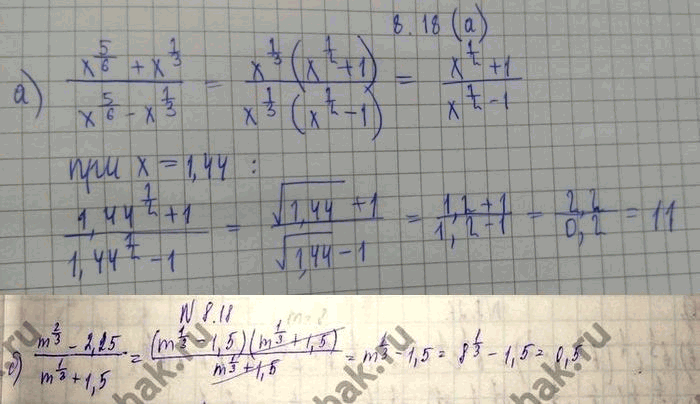 8.18 (а)
а) (x^(5/6) + x^(1/3))/(x^(5/6) - x^(1/3)) = (x^(1/3) (x^(1/2) + 1))/(x^(1/3) (x^(1/2) - 1)) = (x^(1/2) + 1)/(x^(1/2) - 1)
при x = 1,44 :
(1,44^(1/2) + 1)/(1,44^(1/2) - 1) = (√1,44 + 1)/(√1,44 - 1) = (1,2 + 1)/(1,2 - 1) = 2,2/0,2 = 11
N 8.18
б) (m^(2/3) - 2,25)/(m^(1/3) + 1,5) = ((m^(1/3) - 1,5)(m^(1/3) + 1,5))/(m^(1/3) + 1,5) = m^(1/3) - 1,5 = 8^(1/3) - 1,5 = 0,5